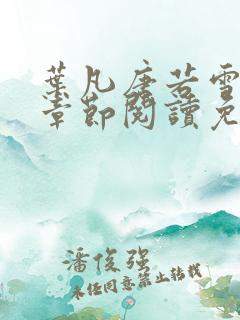 葉凡唐若雪
章節閱讀免
潘俊強
未經同意禁止轉載